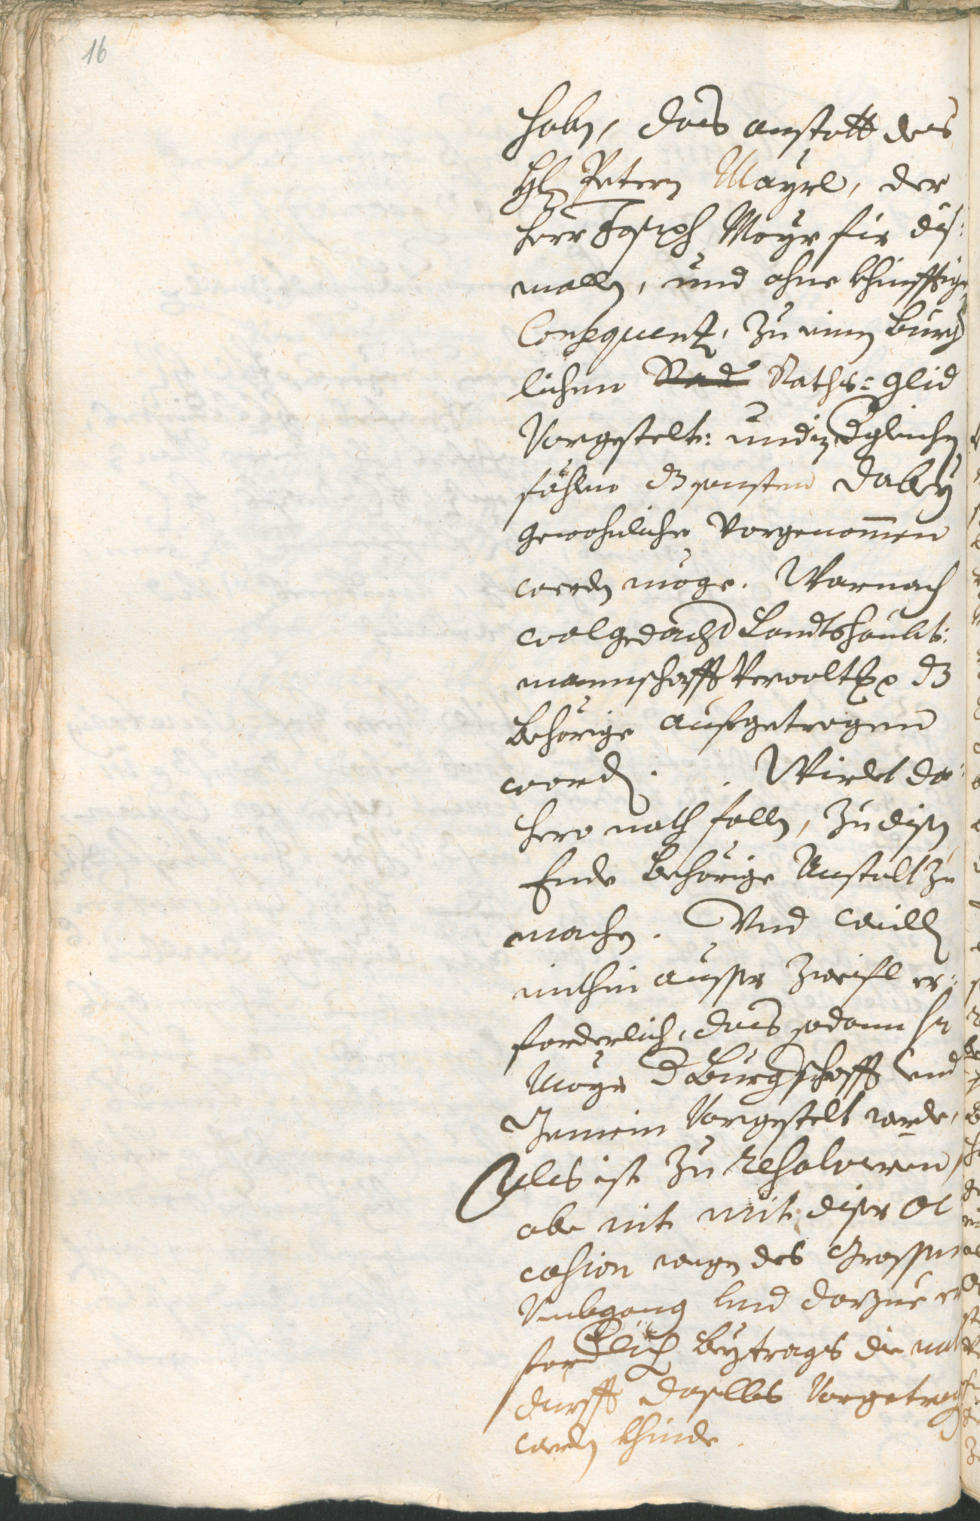 16
habn, dass anstatt des
Hl: Petern Mayrl, der
herr Joseph Mayr für diß:
mallen, und ohne khinfftige
Consequenz, zu einen Burg
lichen Raths=glid
Vorgestelt: und in dgleichen
fählen dz sonsten dabey
gewohnliche vorgenommen
werdn möge. Warnach
wolgedacht Landtshaubt:
mannschafft Verwolt dz
behörige aufgetragen
word. Wirdet da:
hero noth falln, zu disen
Ende behörige Anstalt zu
machen. Und weilln
mithin ausser Zweifl er:
forderlich, dass sodann Hr
Mayr d Burgschafft und
Gemein Vorgestelt werde,
Als ist zu resolvieren
obe nit mit diser oc
casion wegen des Grossen
Umbgang und darzue er
fordlich beytrags die not
durfft daselbs vorgetragen
werdn khinde.